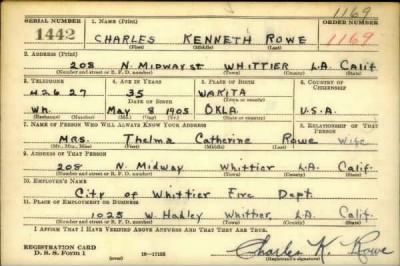 1169
SERIAL NUMBER 1. NAME (Print) ORDER NUMBER
1442 CHARLES KENNETH ROWE 1169
(First) (Middle) (Last)
2. ADDRESS (Print)
208 N. MIDWAY ST WHITTIER L.A. Calif
(Number and street or R. F. D. number) (Town) (County) (State)
3. TELEPHONE 4. AGE IN YEARS 5. PLACE OF BIRTH 6. COUNTRY OF CITIZENSHIP
42627 35 WAKITA
DATE OF BIRTH (Town or county)
Wh. May 8 1905 OKLA. U.S.A.
(Exchange) (Number) (Mo.) (Day) (Yr.) (State or country)
7. NAME OF PERSON WHO WILL ALWAYS KNOW YOUR ADDRESS 8. RELATIONSHIP OF THAT PERSON
MRS. Thelma Catherine Rowe Wife
(Mr., Mrs., Miss) (First) (Middle) (Last)
9. ADDRESS OF THAT PERSON
208 N. Midway Whittier L.A. Calif.
(Number and street or R. F. D. number) (Town) (County) (State)
10. EMPLOYER'S NAME
City of Whittier Fire Dept.
11. PLACE OF EMPLOYMENT OR BUSINESS
1025 W. Hadley Whittier, L.A. Calif.
(Number and street or R. F. D. number) (Town) (County) (State)
I AFFIRM THAT I HAVE VERIFIED ABOVE ANSWERS AND THAT THEY ARE TRUE.
REGISTRATION CARD
D. S. S. Form 1 (over) 16—17105 Charles K. Rowe
(Registrant's signature)